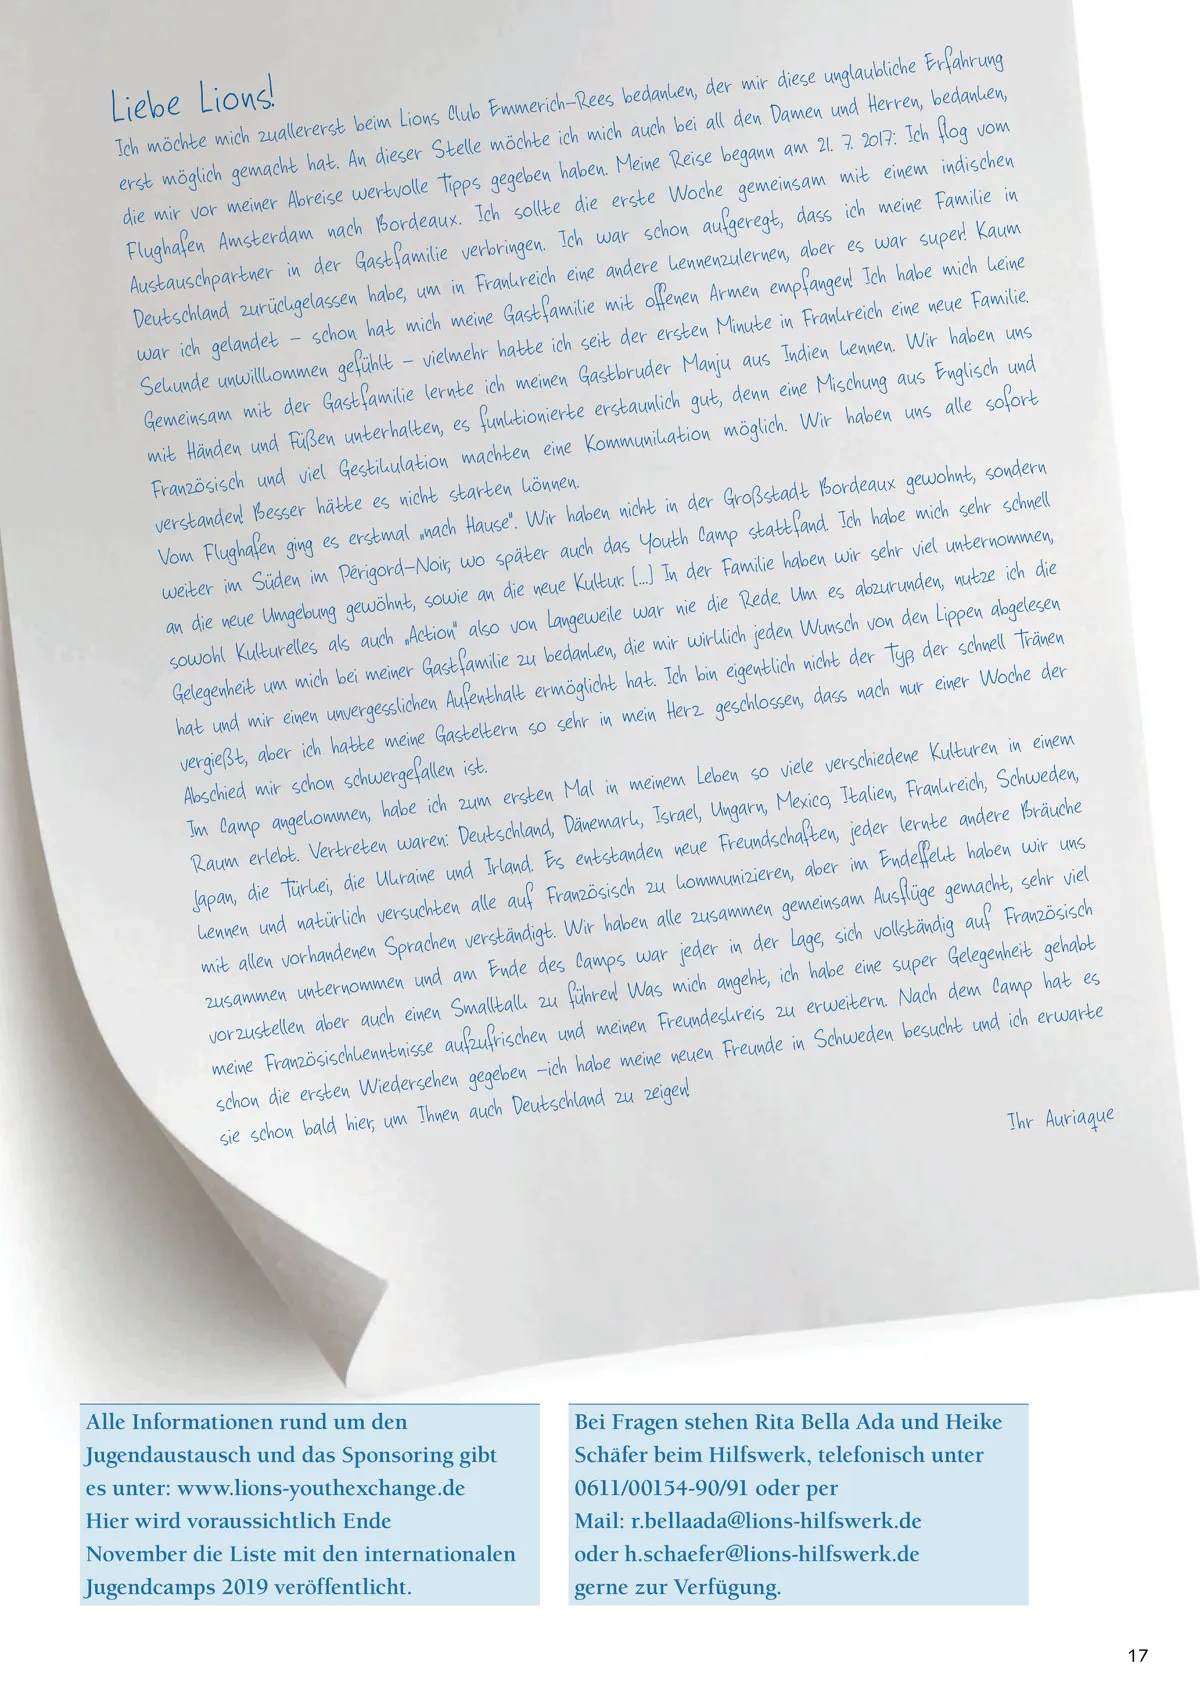 Liebe Lions!
Ich möchte mich zuallererst beim Lions Club Emmerich-Rees bedanken, der mir diese unglaubliche Erfahrung
erst möglich gemacht hat. An dieser Stelle möchte ich mich auch bei all den Damen und Herren, bedanken,
die mir vor meiner Abreise wertvolle Tipps gegeben haben. Meine Reise begann am 21. 7. 2017: Ich flog vom
Flughafen Amsterdam nach Bordeaux. Ich sollte die erste Woche gemeinsam mit einem indischen
Austauschpartner in der Gastfamilie verbringen. Ich war schon aufgeregt, dass ich meine Familie in
Deutschland zurückgelassen habe, um in Frankreich eine andere kennenzulernen, aber es war super! Kaum
war ich gelandet – schon hat mich meine Gastfamilie mit offenen Armen empfangen! Ich habe mich keine
Sekunde unwillkommen gefühlt – vielmehr hatte ich seit der ersten Minute in Frankreich eine neue Familie.
Gemeinsam mit der Gastfamilie lernte ich meinen Gastbruder Manju aus Indien kennen. Wir haben uns
mit Händen und Füßen unterhalten, es funktionierte erstaunlich gut, denn eine Mischung aus Englisch und
Französisch und viel Gestikulation machten eine Kommunikation möglich. Wir haben uns alle sofort
verstanden! Besser hätte es nicht starten können.
Vom Flughafen ging es erstmal „nach Hause". Wir haben nicht in der Großstadt Bordeaux gewohnt, sondern
weiter im Süden im Périgord-Noir, wo später auch das Youth Camp stattfand. Ich habe mich sehr schnell
an die neue Umgebung gewöhnt, sowie an die neue Kultur. [...] In der Familie haben wir sehr viel unternommen,
sowohl Kulturelles als auch „Action" also von Langeweile war nie die Rede. Um es abzurunden, nutze ich die
Gelegenheit um mich bei meiner Gastfamilie zu bedanken, die mir wirklich jeden Wunsch von den Lippen abgelesen
hat und mir einen unvergesslichen Aufenthalt ermöglicht hat. Ich bin eigentlich nicht der Typ, der schnell Tränen
vergießt, aber ich hatte meine Gasteltern so sehr in mein Herz geschlossen, dass nach nur einer Woche der
Abschied mir schon schwergefallen ist.
Im Camp angekommen, habe ich zum ersten Mal in meinem Leben so viele verschiedene Kulturen in einem
Raum erlebt. Vertreten waren: Deutschland, Dänemark, Israel, Ungarn, Mexico, Italien, Frankreich, Schweden,
Japan, die Türkei, die Ukraine und Irland. Es entstanden neue Freundschaften, jeder lernte andere Bräuche
kennen und natürlich versuchten alle auf Französisch zu kommunizieren, aber im Endeffekt haben wir uns
mit allen vorhandenen Sprachen verständigt. Wir haben alle zusammen gemeinsam Ausflüge gemacht, sehr viel
zusammen unternommen und am Ende des Camps war jeder in der Lage, sich vollständig auf Französisch
vorzustellen aber auch einen Smalltalk zu führen! Was mich angeht, ich habe eine super Gelegenheit gehabt
meine Französischkenntnisse aufzufrischen und meinen Freundeskreis zu erweitern. Nach dem Camp hat es
schon die ersten Wiedersehen gegeben –ich habe meine neuen Freunde in Schweden besucht und ich erwarte
sie schon bald hier, um Ihnen auch Deutschland zu zeigen!
Ihr Auriaque
Alle Informationen rund um den
Jugendaustausch und das Sponsoring gibt
es unter: www.lions-youthexchange.de
Hier wird voraussichtlich Ende
November die Liste mit den internationalen
Jugendcamps 2019 veröffentlicht.
Bei Fragen stehen Rita Bella Ada und Heike
Schäfer beim Hilfswerk, telefonisch unter
0611/00154-90/91 oder per
Mail: r.bellaada@lions-hilfswerk.de
oder h.schaefer@lions-hilfswerk.de
gerne zur Verfügung.
17